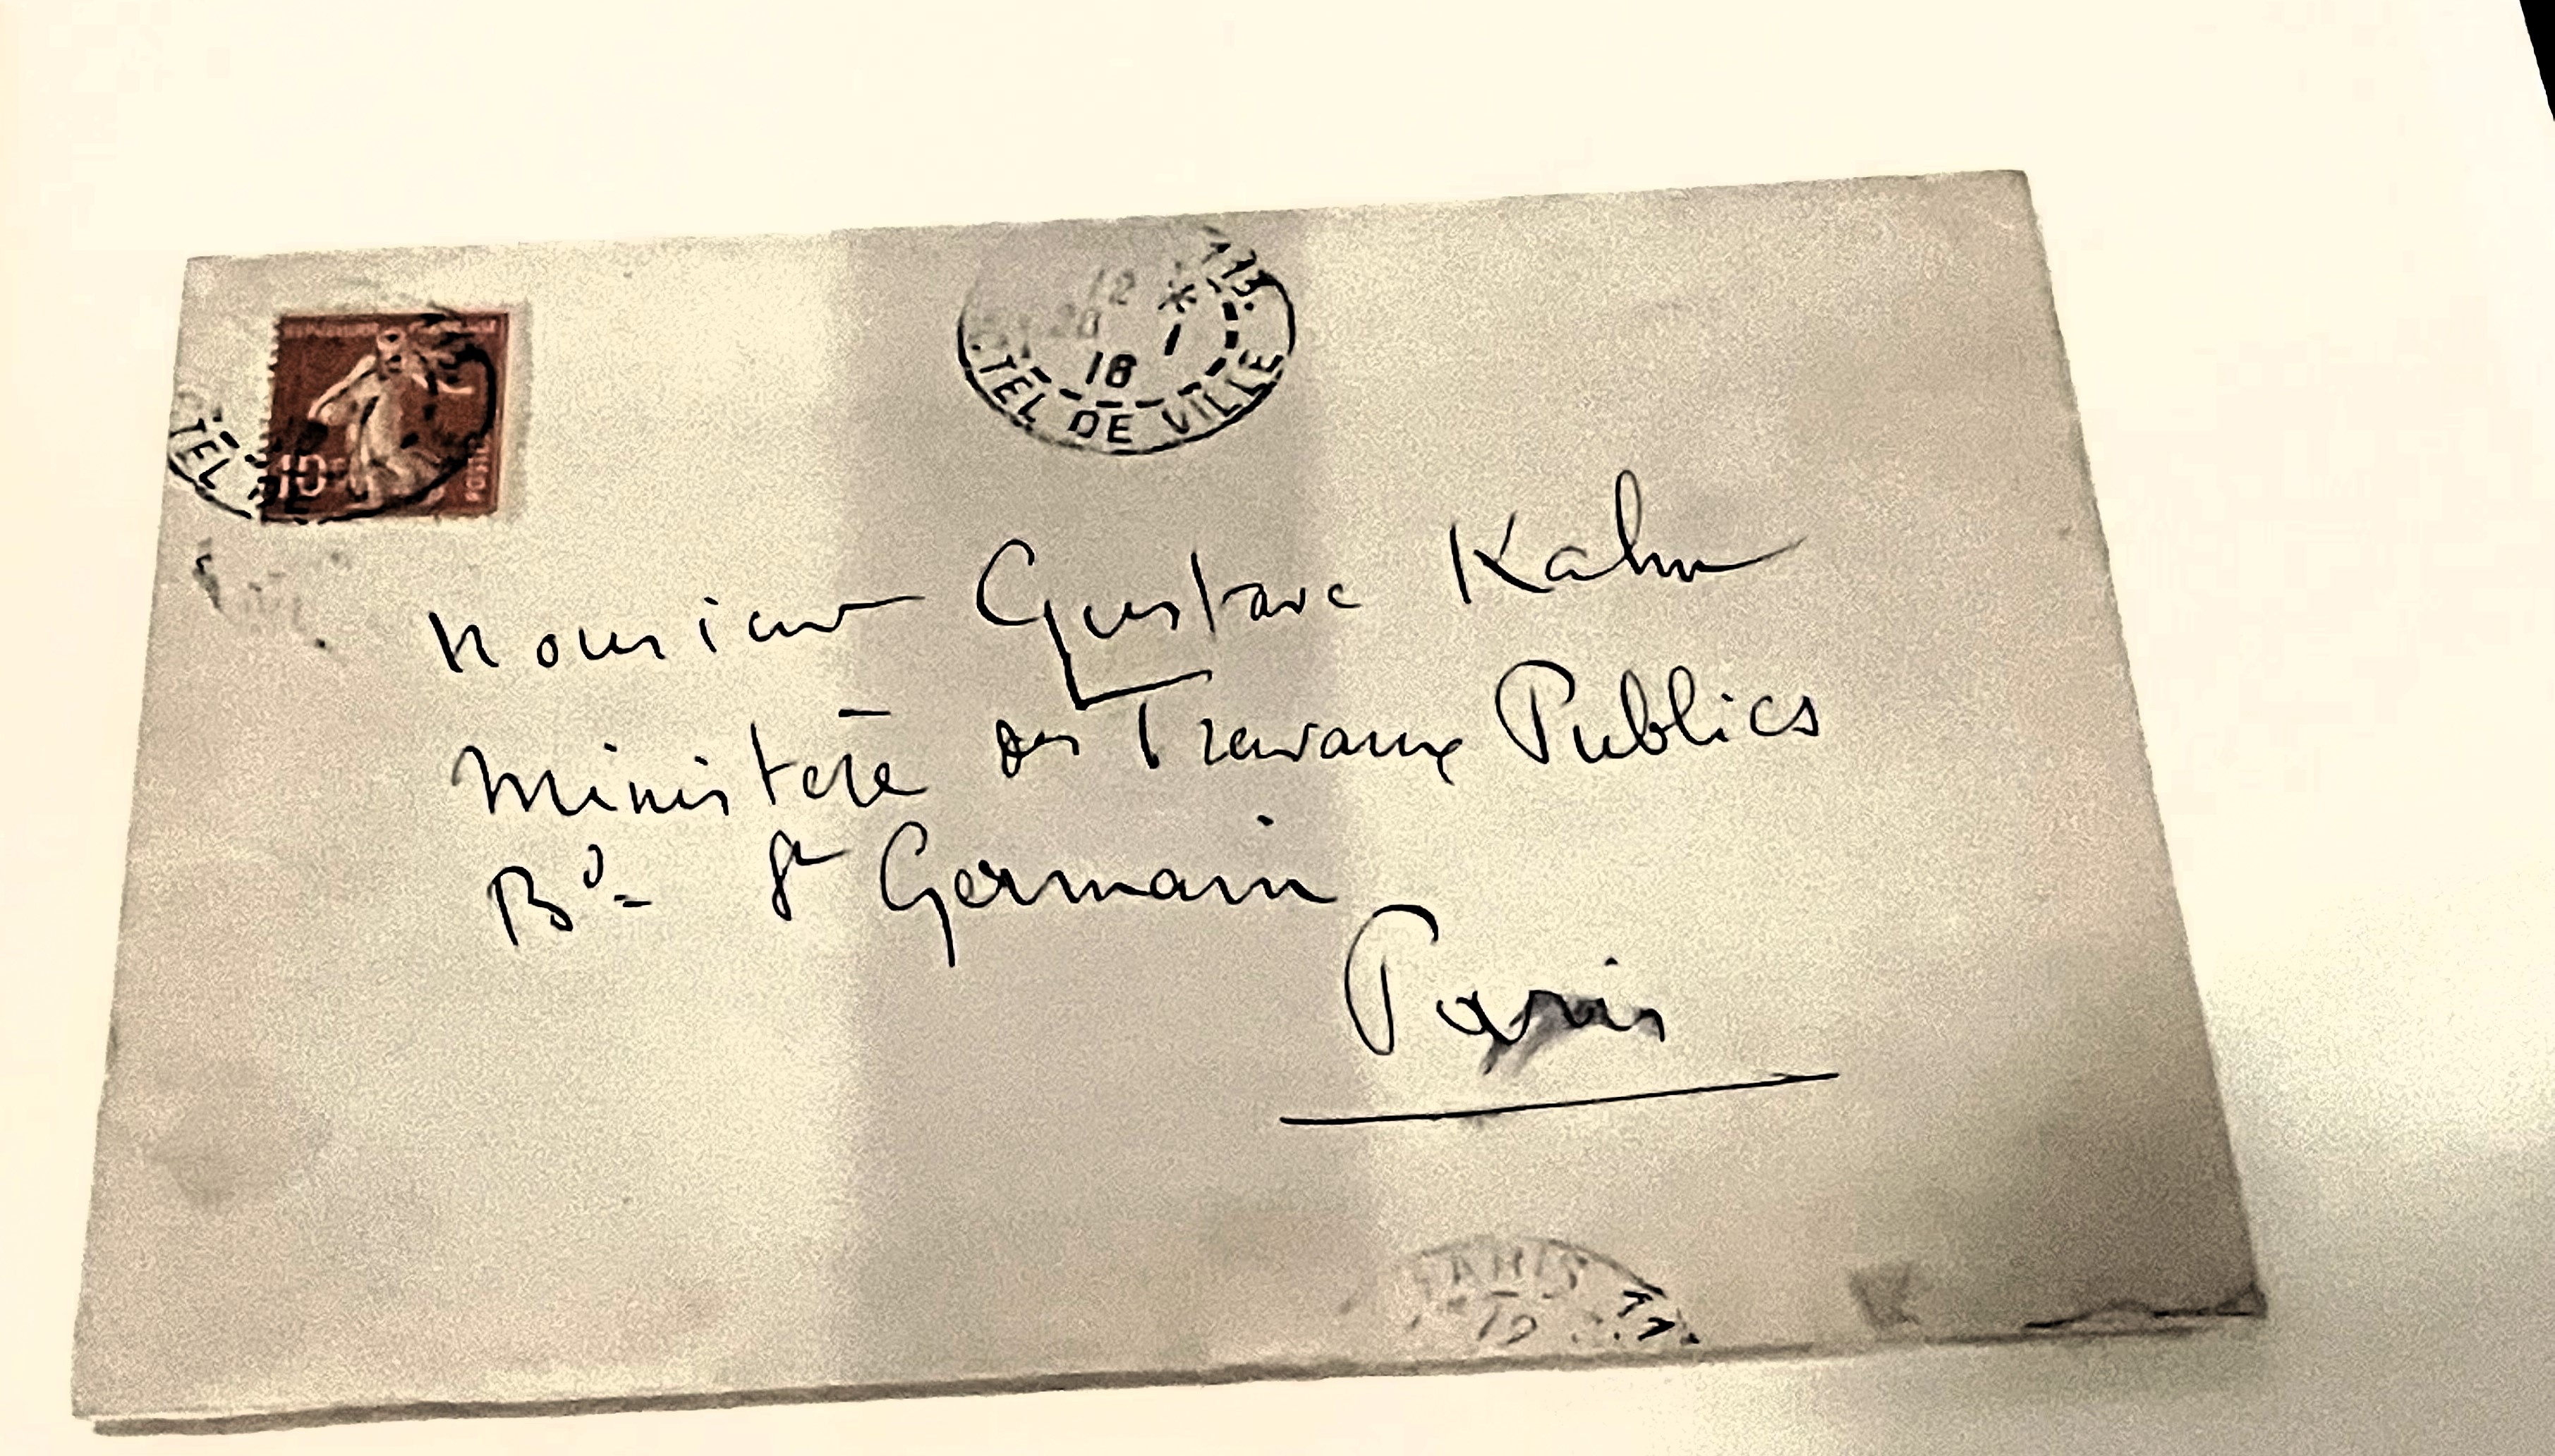 12 *
18 1
TEL DE VILLE
10
POSTES
TEL DE
Monsieur Gustave Kahn
Ministère des Travaux Publics
Bd St Germain
Paris
PARIS